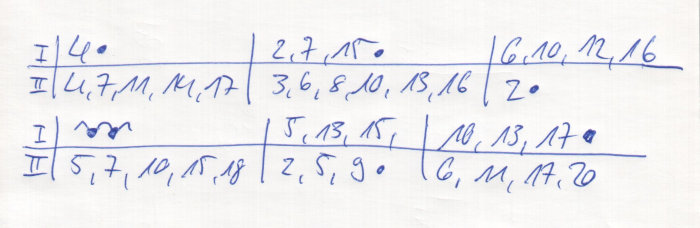 I | 4• | 2, 7, 15• | 6, 10, 12, 16
II | 4, 7, 11, 14, 17 | 3, 6, 8, 10, 13, 16 | 2•
I | | 5, 13, 15, | 10, 13, 17•
II | 5, 7, 10, 15, 18 | 2, 5, 9• | 6, 11, 17, 20